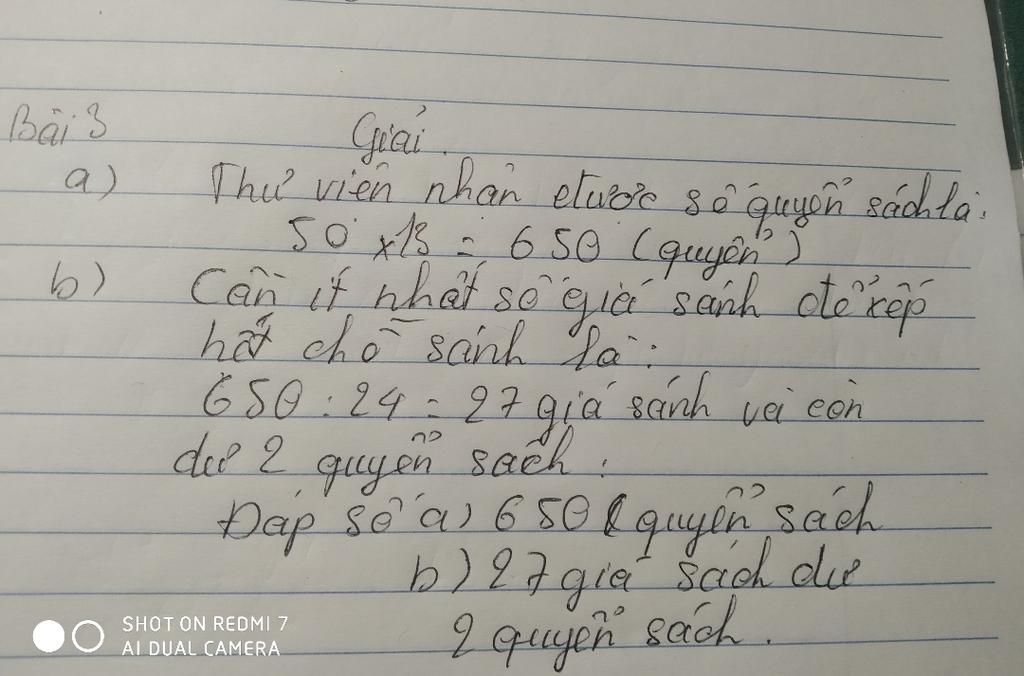 Bài 3
Giải.
a) Thư viện nhận được số quyển sách là:
50 x 13 = 650 (quyển)
b) Cần ít nhất số giá sánh để xếp
hết chỗ sánh là:
650 : 24 = 27 giá sánh và còn
dư 2 quyển sách.
Đáp số a) 650 quyển sách
b) 27 giá sách dư
2 quyển sách.
SHOT ON REDMI 7
AI DUAL CAMERA